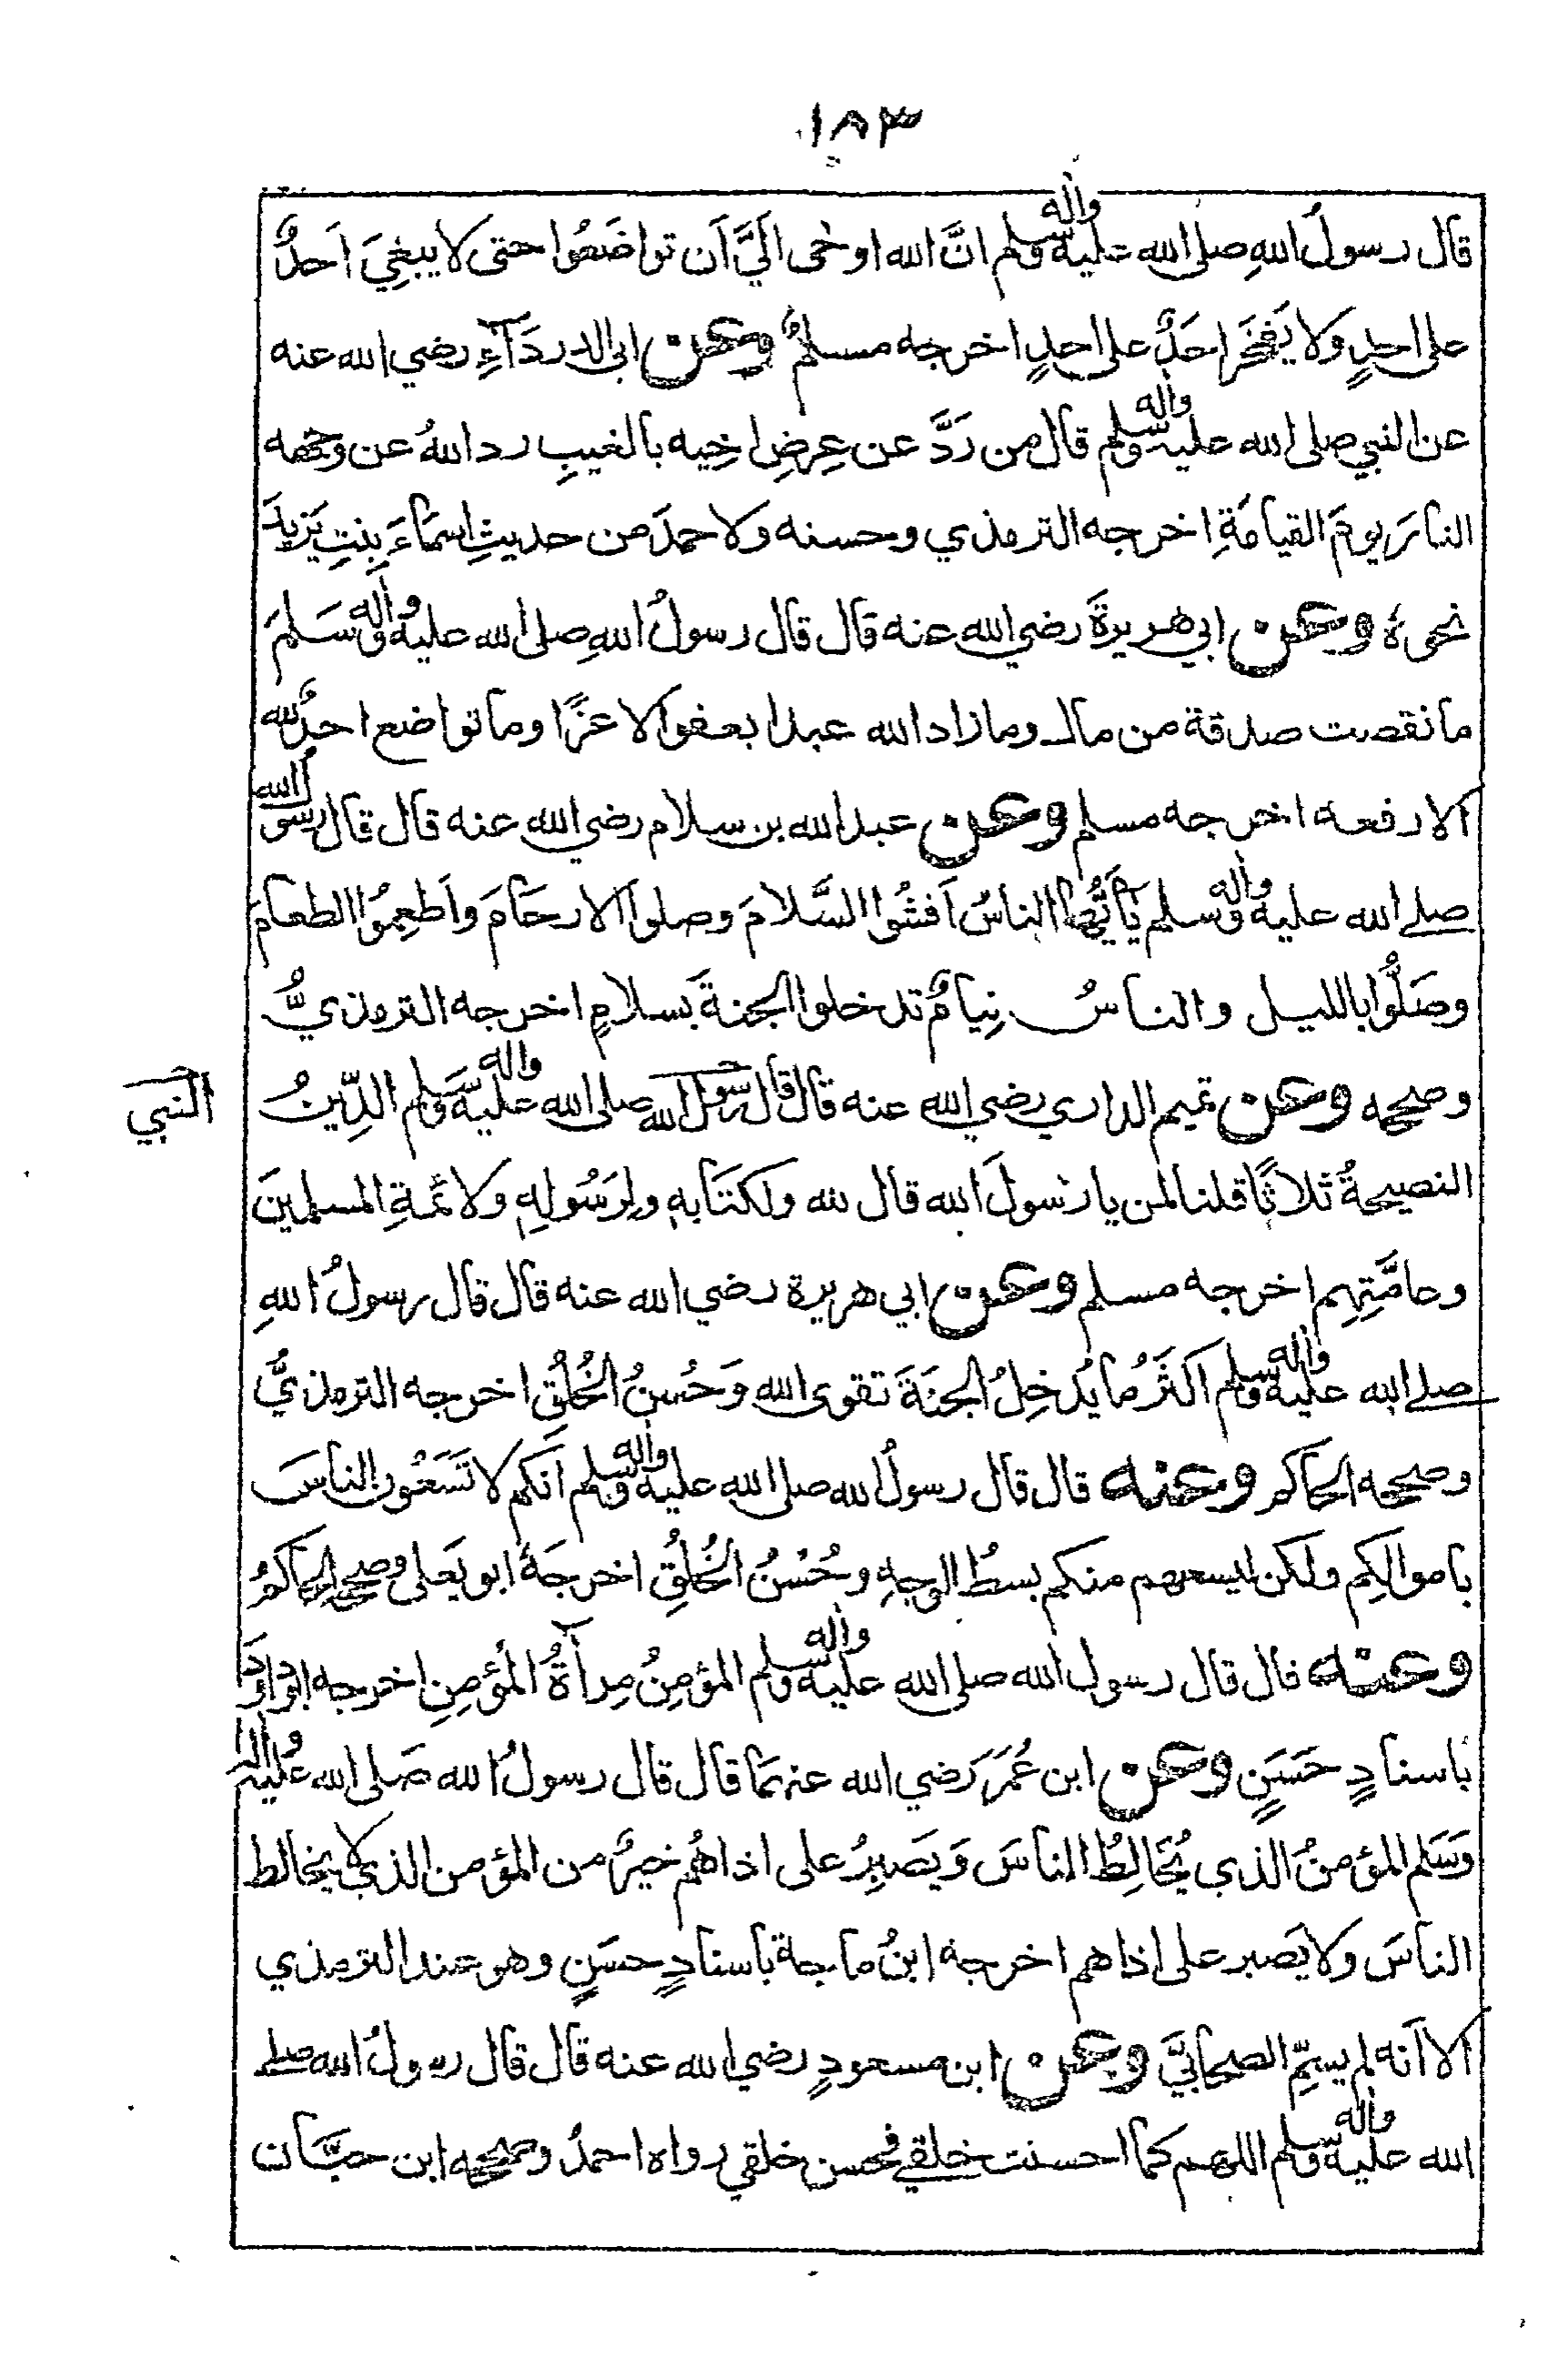 ١٨٣
قال رسولُ اللهِ صلى الله عليه واله وسلم انَّ الله اوحٰى اليَّ اَن تواضَعُوا حتى لا يبغِيَ اَحدٌ
على احدٍ ولا يَفخَرَ احَدٌ على احدٍ اخرجه مسلمٌ وعن ابى الدردَآءِ رضي الله عنه
عن النبي صلى الله عليه واله وسلم قال من رَدَّ عن عِرضِ اخِيه بالغيبِ رد اللهُ عن وجهه
النارَ يومَ القيامَةِ اخرجه الترمذي وحسنه ولاحمدَ من حديثِ اسمَاءَ بِنتِ يَزيدَ
نحوهُ وعن ابي هريرةَ رضي الله عنه قال قال رسولُ اللهِ صلى الله عليه واله وسَلمَ
ما نقصت صدقة من مال وما زاد الله عبدا بعفو الا عزًا وما تواضع احدٌ لله
الا رفعه اخرجه مسلم وعن عبد الله بن سلام رضي الله عنه قال قال رسولُ الله
صلى الله عليه واله وسلم يآ ايُّها الناسُ اَفشُوا السَّلامَ وصلوا الارحَامَ واَطعِمُوا الطعامَ
وصَلُّوا بالليل والناسُ نِيامٌ تدخلوا الجنةَ بسلامٍ اخرجه الترمذيُّ
وصححه وعن تميم الداري رضي الله عنه قال قال رسول الله صلى الله عليه واله وسلم الدِّينُ
النبي
النصيحةُ ثلاثًا قلنا لمن يا رسولَ الله قال لله ولكتَابهِ ولِرَسُولِهِ ولائمةِ المسلمينَ
وعامَّتِهِم اخرجه مسلم وعن ابي هريرة رضي الله عنه قال قال رسولُ اللهِ
صلى الله عليه واله وسلم اكثَرُ ما يُدخِلُ الجنَةَ تقوى الله وَحُسنُ الخُلُقِ اخرجه الترمذيُّ
وصححه الحاكم وعنه قال قال رسولُ الله صلى الله عليه واله وسلم اَنكم لا تَسَعُون الناسَ
باموالِكم ولكن ليسعهم منكم بسطُ الوجهِ وحُسْنُ الخُلُقِ اخرجَهُ ابو يَعلى وصححه الحاكمُ
وعنه قال قال رسول الله صلى الله عليه واله وسلم المؤمِنُ مِرآةُ المُؤمِنِ اخرجه ابو داودَ
باسنادٍ حَسَنٍ وعن ابن عُمَرَ رَضي الله عنهمَا قال قال رسولُ الله صَلى الله عليه واله
وَسَلم المؤمنُ الذي يُخَالِطُ الناسَ وَيَصبِرُ على اذاهُم خيرٌ من المؤمن الذي لا يخالط
الناسَ ولا يَصبر على اذاهم اخرجه ابنُ ماجة باسنادٍ حسَنٍ وهو عند الترمذي
الا اَنه لم يسمِّ الصحابيَّ وعن ابن مسعودٍ رضي الله عنه قال قال رسولُ الله صلى
الله عليه واله وسلم اللهم كما احسنت خلقي فحسن خلقي رواه احمدُ وصححه ابن حبَّان